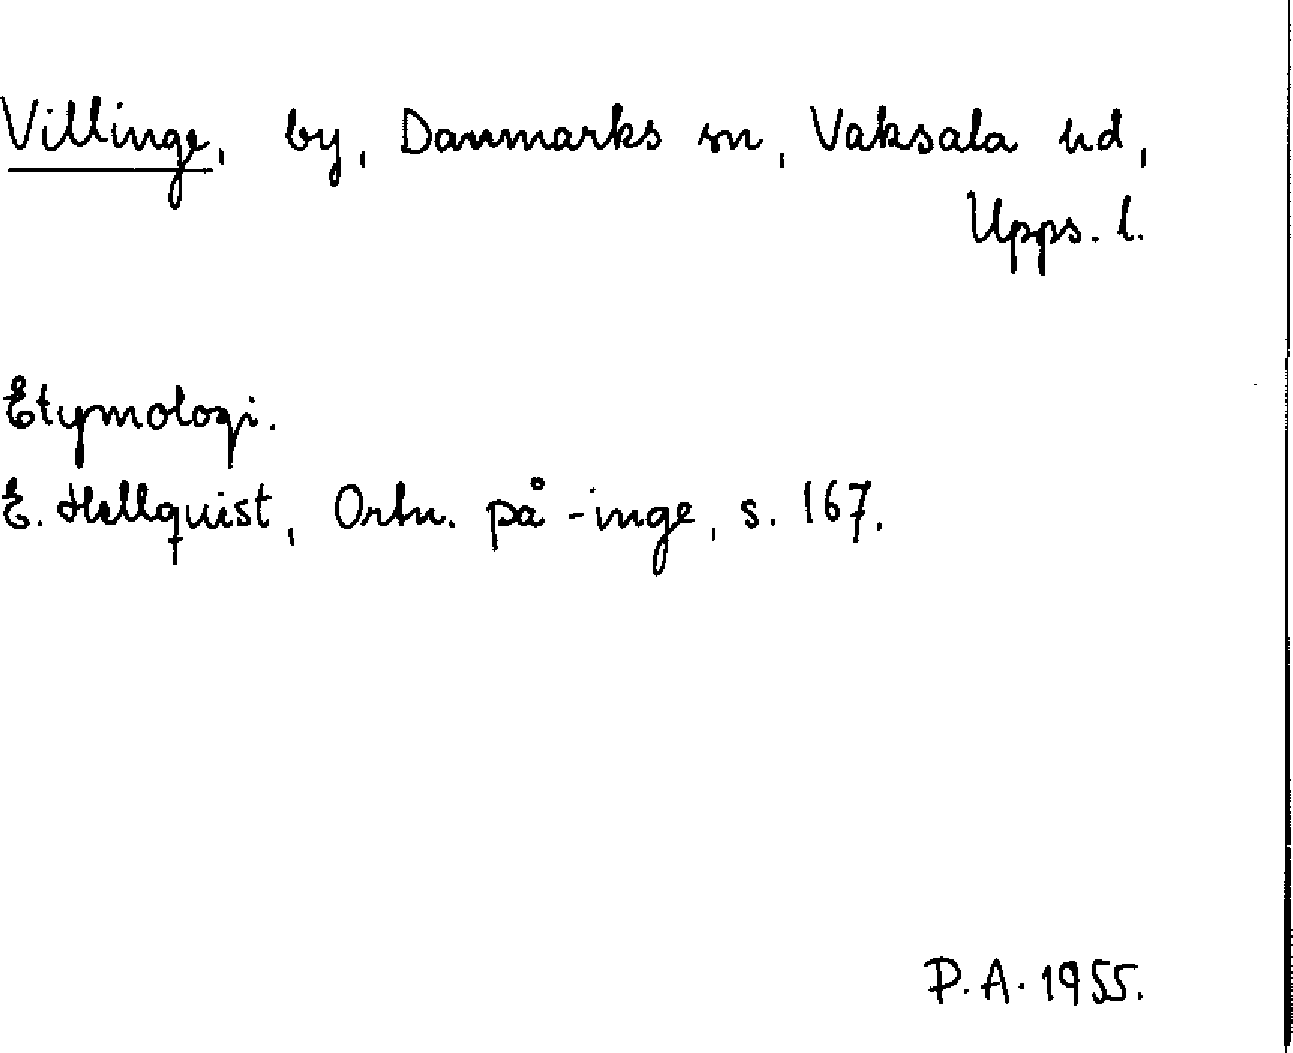 Villinge, by, Danmarks sn, Vaksala hd,
Upps. l.
Etymologi.
E. Hellquist, Ortn. på -inge, s. 167.
P.A. 1955.